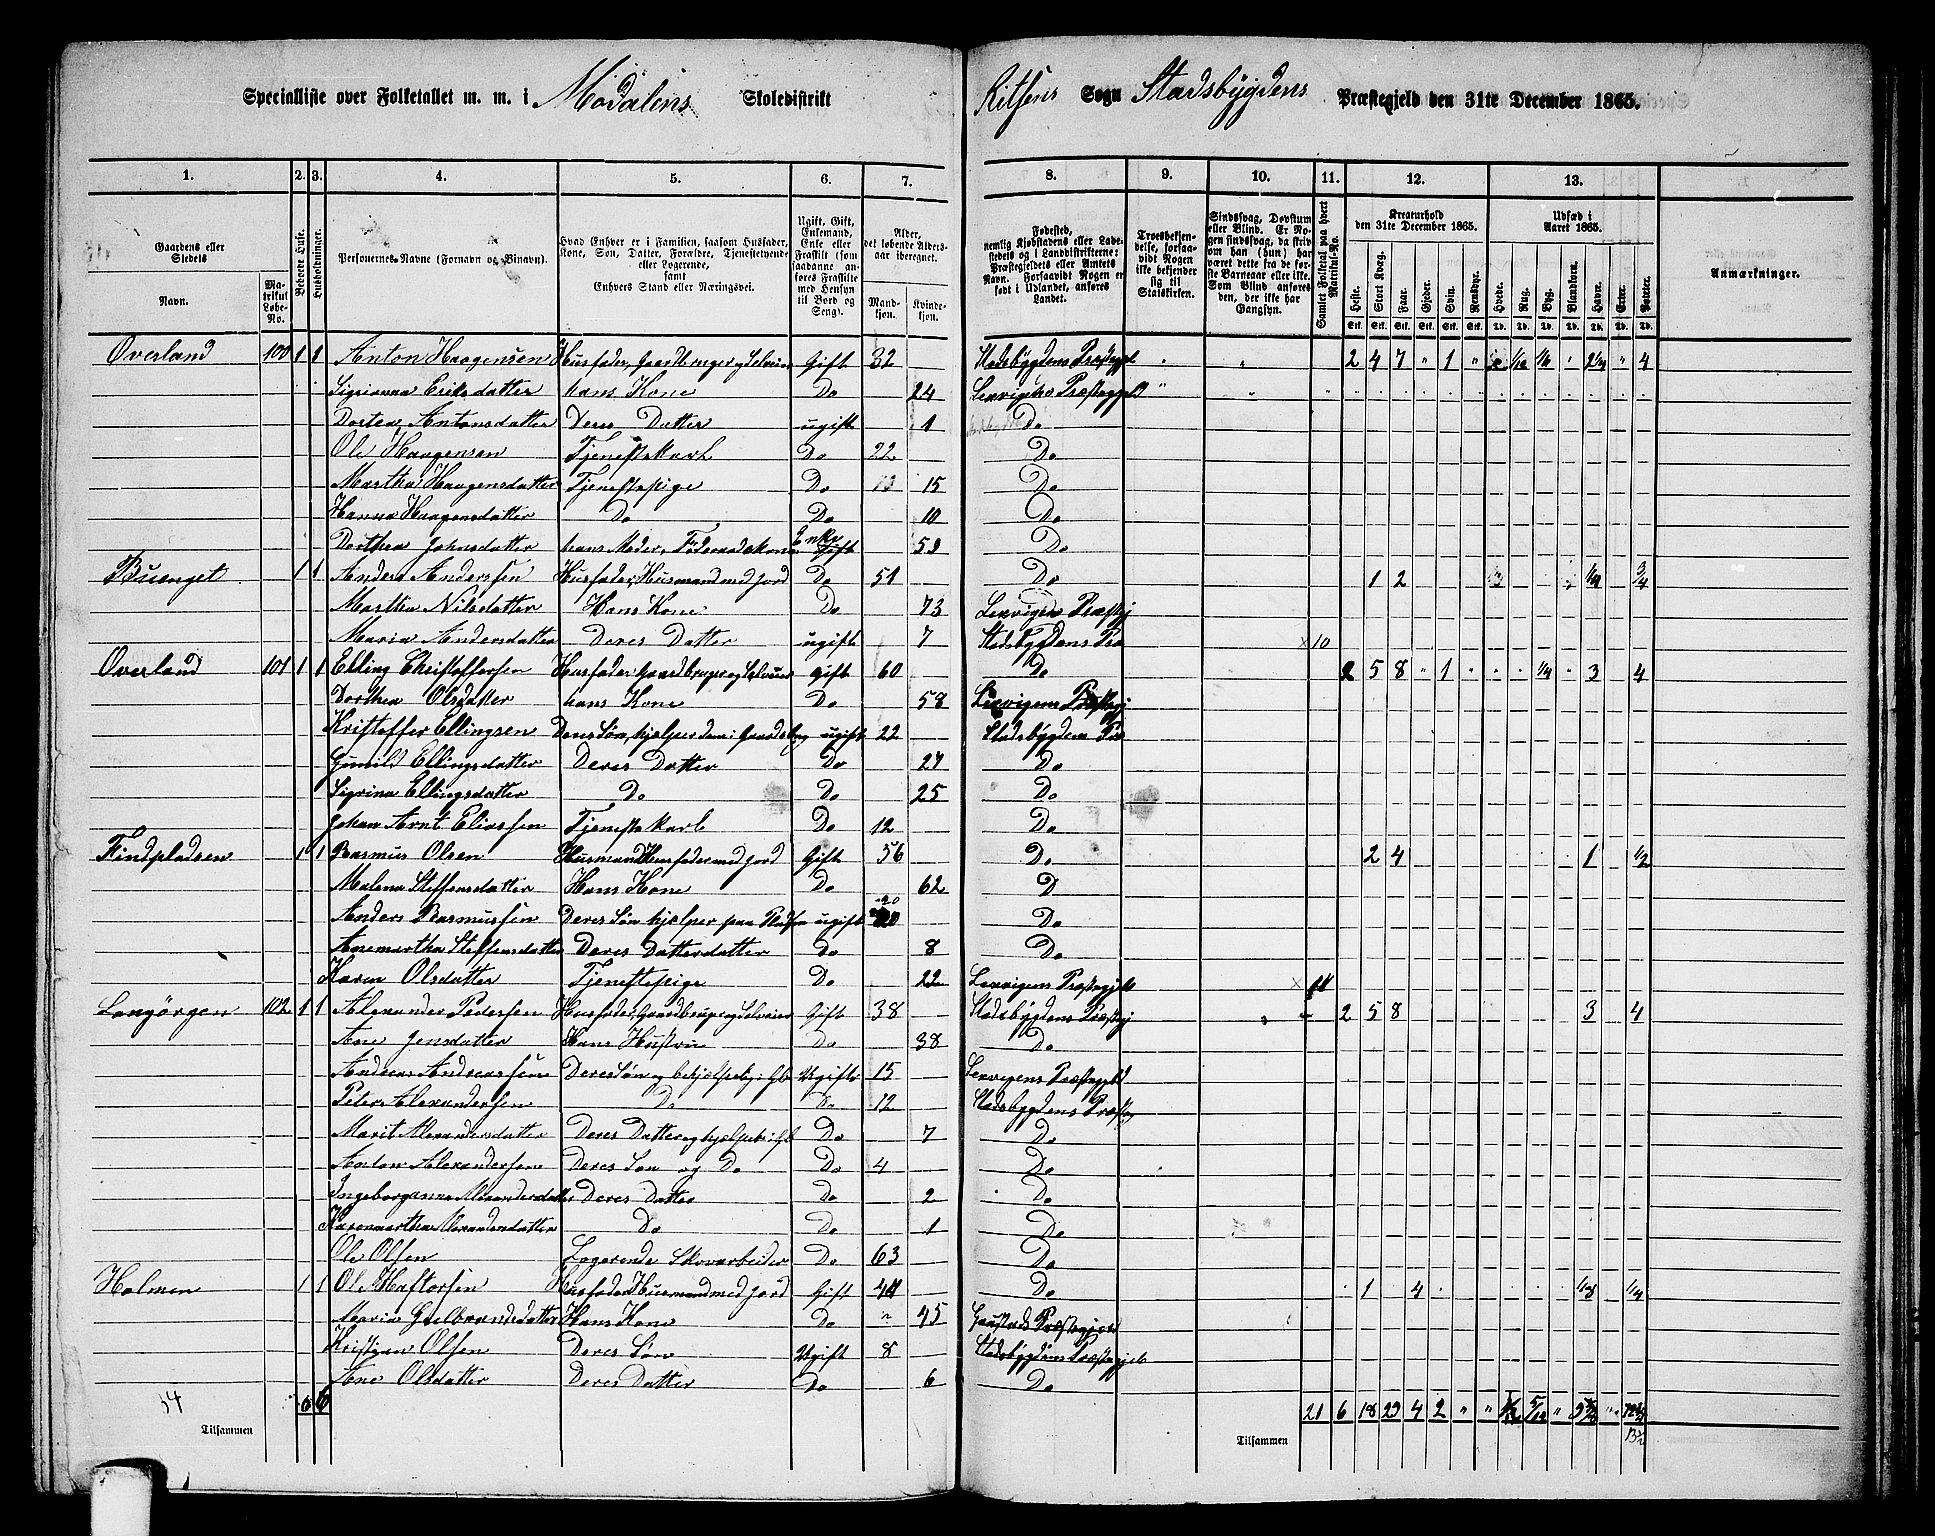 Specialliste over Folketallet m. m. i Modalens Skoledistrikt Ritsens Sogn Stadsbygdens Præstegjeld den 31te December 1865.
1. 2. 3. 4. 5. 6. 7. 8. 9. 10. 11. 12. 13.
Gaardens eller Stedets Navn. Matrikul Løbe-No. Beboede Huse. Husholdninger. Personernes Navne (Fornavn og Binavn). Hvad Enhver er i Familien, saasom Husfader, Kone, Søn, Datter, Forældre, Tjenestetyende eller Logerende, samt Enhvers Stand eller Næringsvei. Ugift, Gift, Enkemand, Enke eller Fraskilt (som saadanne anføres Fraskilte med Hensyn til Bord og Seng). Alder, det løbende Aldersaar iberegnet. Mandkjøn. Kvindekjøn. Fødested, nemlig Kjøbstadens eller Ladestedets og i Landdistrikterne: Præstegjeldets eller Amtets Navn. Forsaavidt Nogen er født i Udlandet, anføres Landet. Troesbekjendelse, forsaavidt Nogen ikke bekjender sig til Statskirken. Sindssvag, Døvstum eller Blind. Er Nogen sindssvag, da skrives om han (hun) har været dette fra de første Barneaar eller ikke. Som Blind anføres den, der ikke har Gangsyn. Samlet Folketal paa hvert Matrikul-No. Kreaturhold den 31te December 1865. Heste. Stort Kvæg. Faar. Gjeder. Svin. Rensdyr. Udsæd i Aaret 1865. Hvede. Rug. Byg. Blandkorn. Havre. Erter. Poteter. Anmærkninger.
Overland 100 1 1 Anton Haagensen Husfader, Gaardbruger og Selveier Gift 32 Stadsbygdens Præstegjel " " 2 4 7 " 1 " " 1/16 1/6 " 2 1/4 " 4
Sigrianna Eriksdatter hans Kone Do 24 Lexvigens Præstegjeld "
Dortea Antonsdatter Deres Datter ugift 1 Do
Ole Haagensen Tjenestekarl Do 22 Do
Martha Haagensdatter Tjenestepige Do 15 Do
Hanna Haagensdatter Do Do 10 Do
Dorthea Johnsdatter hans Moder, Føderaadskone Enke 59 Do
Buenget 1 1 Anders Anderssen Husfader, Husmand med Jord Do 51 Do 1 2 3/4
Martha Nilsdatter Hans Kone Do 73 Lexvigens Præstgj
Maria Andersdatter Deres Datter ugift 7 Stadsbygdens Præ × 10
Overland 101 1 1 Elling Christoffersen Husfader, Gaardbruger og Selveier Gift 60 Do 2 5 8 " 1 " " " 1/4 " 3 4
Dorthea Olsdatter hans Kone Do 58 Lexvigens Præstegj
Kristoffer Ellingsen Deres Søn, hjælper dem i Gaardsbrug ugift 22 Stadsbygdens Præ
Gunild Ellingsdatter Deres Datter Do 27 Do
Sigrina Ellingsdatter Do Do 25 Do
Johan Arnt Eliassen Tjenestekarl Do 12 Do
Findpladsen 1 1 Rasmus Olsen Husmand Husfader med Jord Gift 56 Do 2 4 1 1/2
Malena Steffensdatter Hans Kone Do 62 D
Anders Rasmussen Deres Søn hjelper paa Pladsen ugift 20 Do
Anemartha Steffensdatter Deres Datterdatter Do 8 Do
Karen Olsdatter Tjenestepige Do 22 Lexvigens Præstegjeld × 11
Langørgen 102 1 1 Alexander Pedersen Husfader, Gaardbruger og Selveier Gift 38 Stadsbygdens Præstegj 2 5 8 3 4
Ane Jensdatter Hans Hustru Do 38 Do
Andreas Andreassen Deres Søn og behjælpelig i Gb Ugift 15 Lexvigens Præstegjeld
Peter Alexandersen Do Do 12 Stadsbygdens Præsteg
Marit Alexandersdatter Deres Datter og hjælper i Gb Do 7 Do
Anton Alexandersen Deres Søn og Do Do 4 Do
Ingeborganna Alexandersdatter Deres Datter Do 2 Do
Karenmartha Alexandersdatter Do Do 1 Do
Ole Olsen Logerende Skovarbeider Do 63 Do
Holmen 1 1 Ole Haftorsen Husfader Husmand med Jord Gift 44 Do 1 4 1/4
Maria Gulbrandsdatter Hans Kone Do " 45 Præstegjeld
Kristian Olsen Deres Søn Ugift 8 Stadsbygdens Præstegjeld
Ane Olsdatter Deres Datter Do 6 Do
34 6 6 21 6 18 29 4 2 " " 5/12 " " "
Tilsammen Tilsammen